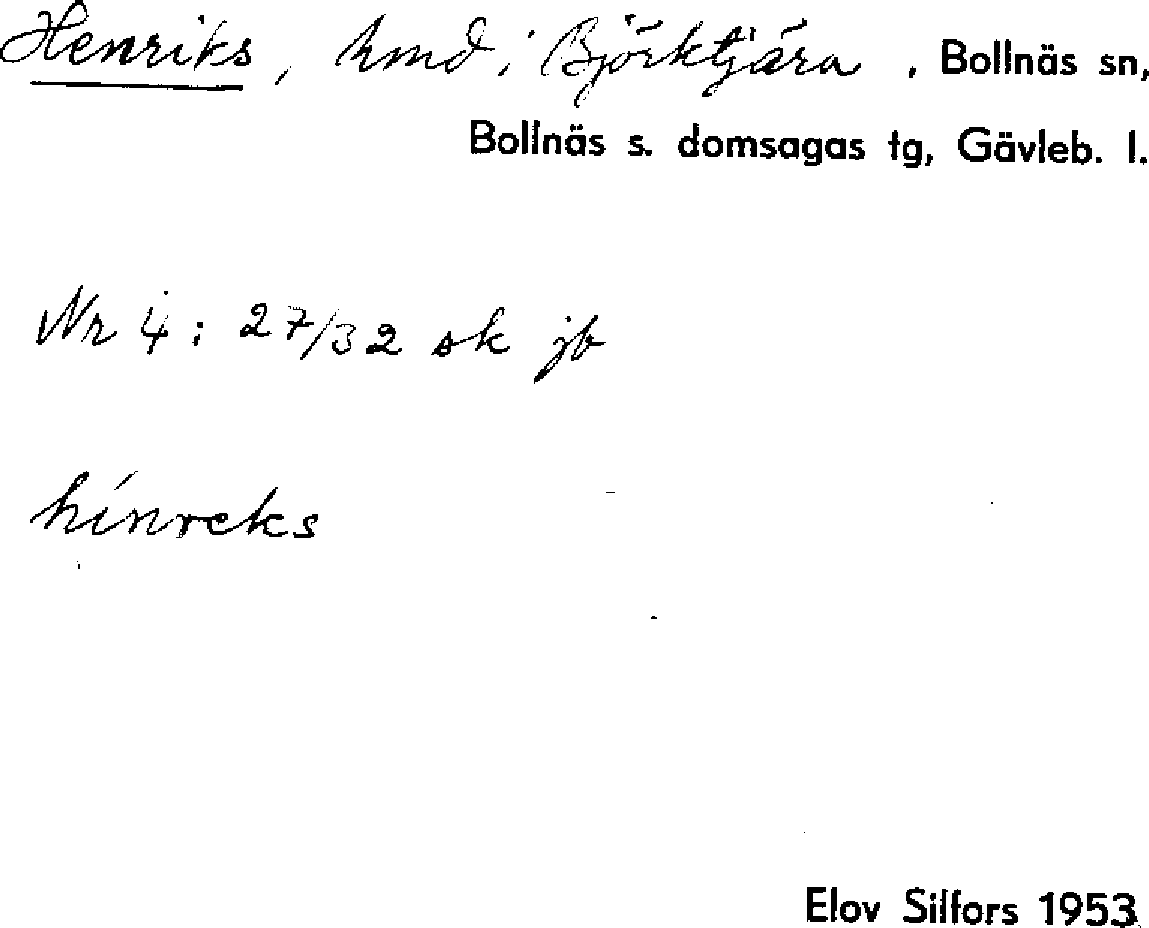 Henriks, hmd i Björktjära, Bollnäs sn,
Bollnäs s. domsagas tg, Gävleb. l.
Nr 4: 27/32 sk jb
hínreks
Elov Silfors 1953